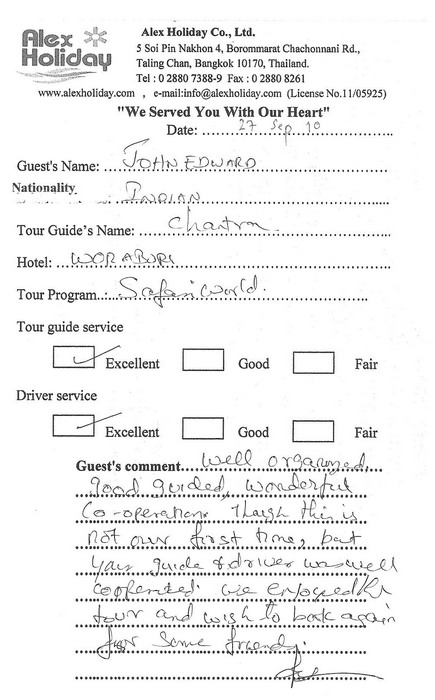 Alex Holiday
Alex Holiday Co., Ltd.
5 Soi Pin Nakhon 4, Borommarat Chachonnani Rd.,
Taling Chan, Bangkok 10170, Thailand.
Tel : 0 2880 7388-9 Fax : 0 2880 8261
www.alexholiday.com , e-mail:info@alexholiday.com (License No.11/05925)
"We Served You With Our Heart"
Date: 27 Sep 10
Guest's Name: JOHN EDWARD
Nationality INDIAN
Tour Guide's Name:
Hotel: WORABURI
Tour Program.: Safari World.
Tour guide service
Excellent Good Fair
Driver service
Excellent Good Fair
Guest's comment well organized,
good guided, wonderful
Co-operation. Though this is
not our first time, but
your guide & driver was well
we enjoyed
tour and wish to book again
for some friends.